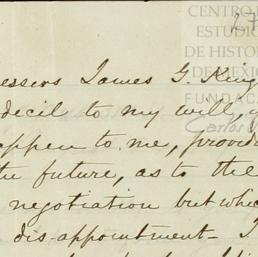 CENTRO
ESTUDIO
DE HISTOR
DE MEXIC
FUNDAC
Carlos
27
essers James G. King
decil to my will,
appen to me, provide
the future, as to the
negotiation but whic
dis-appointment - I